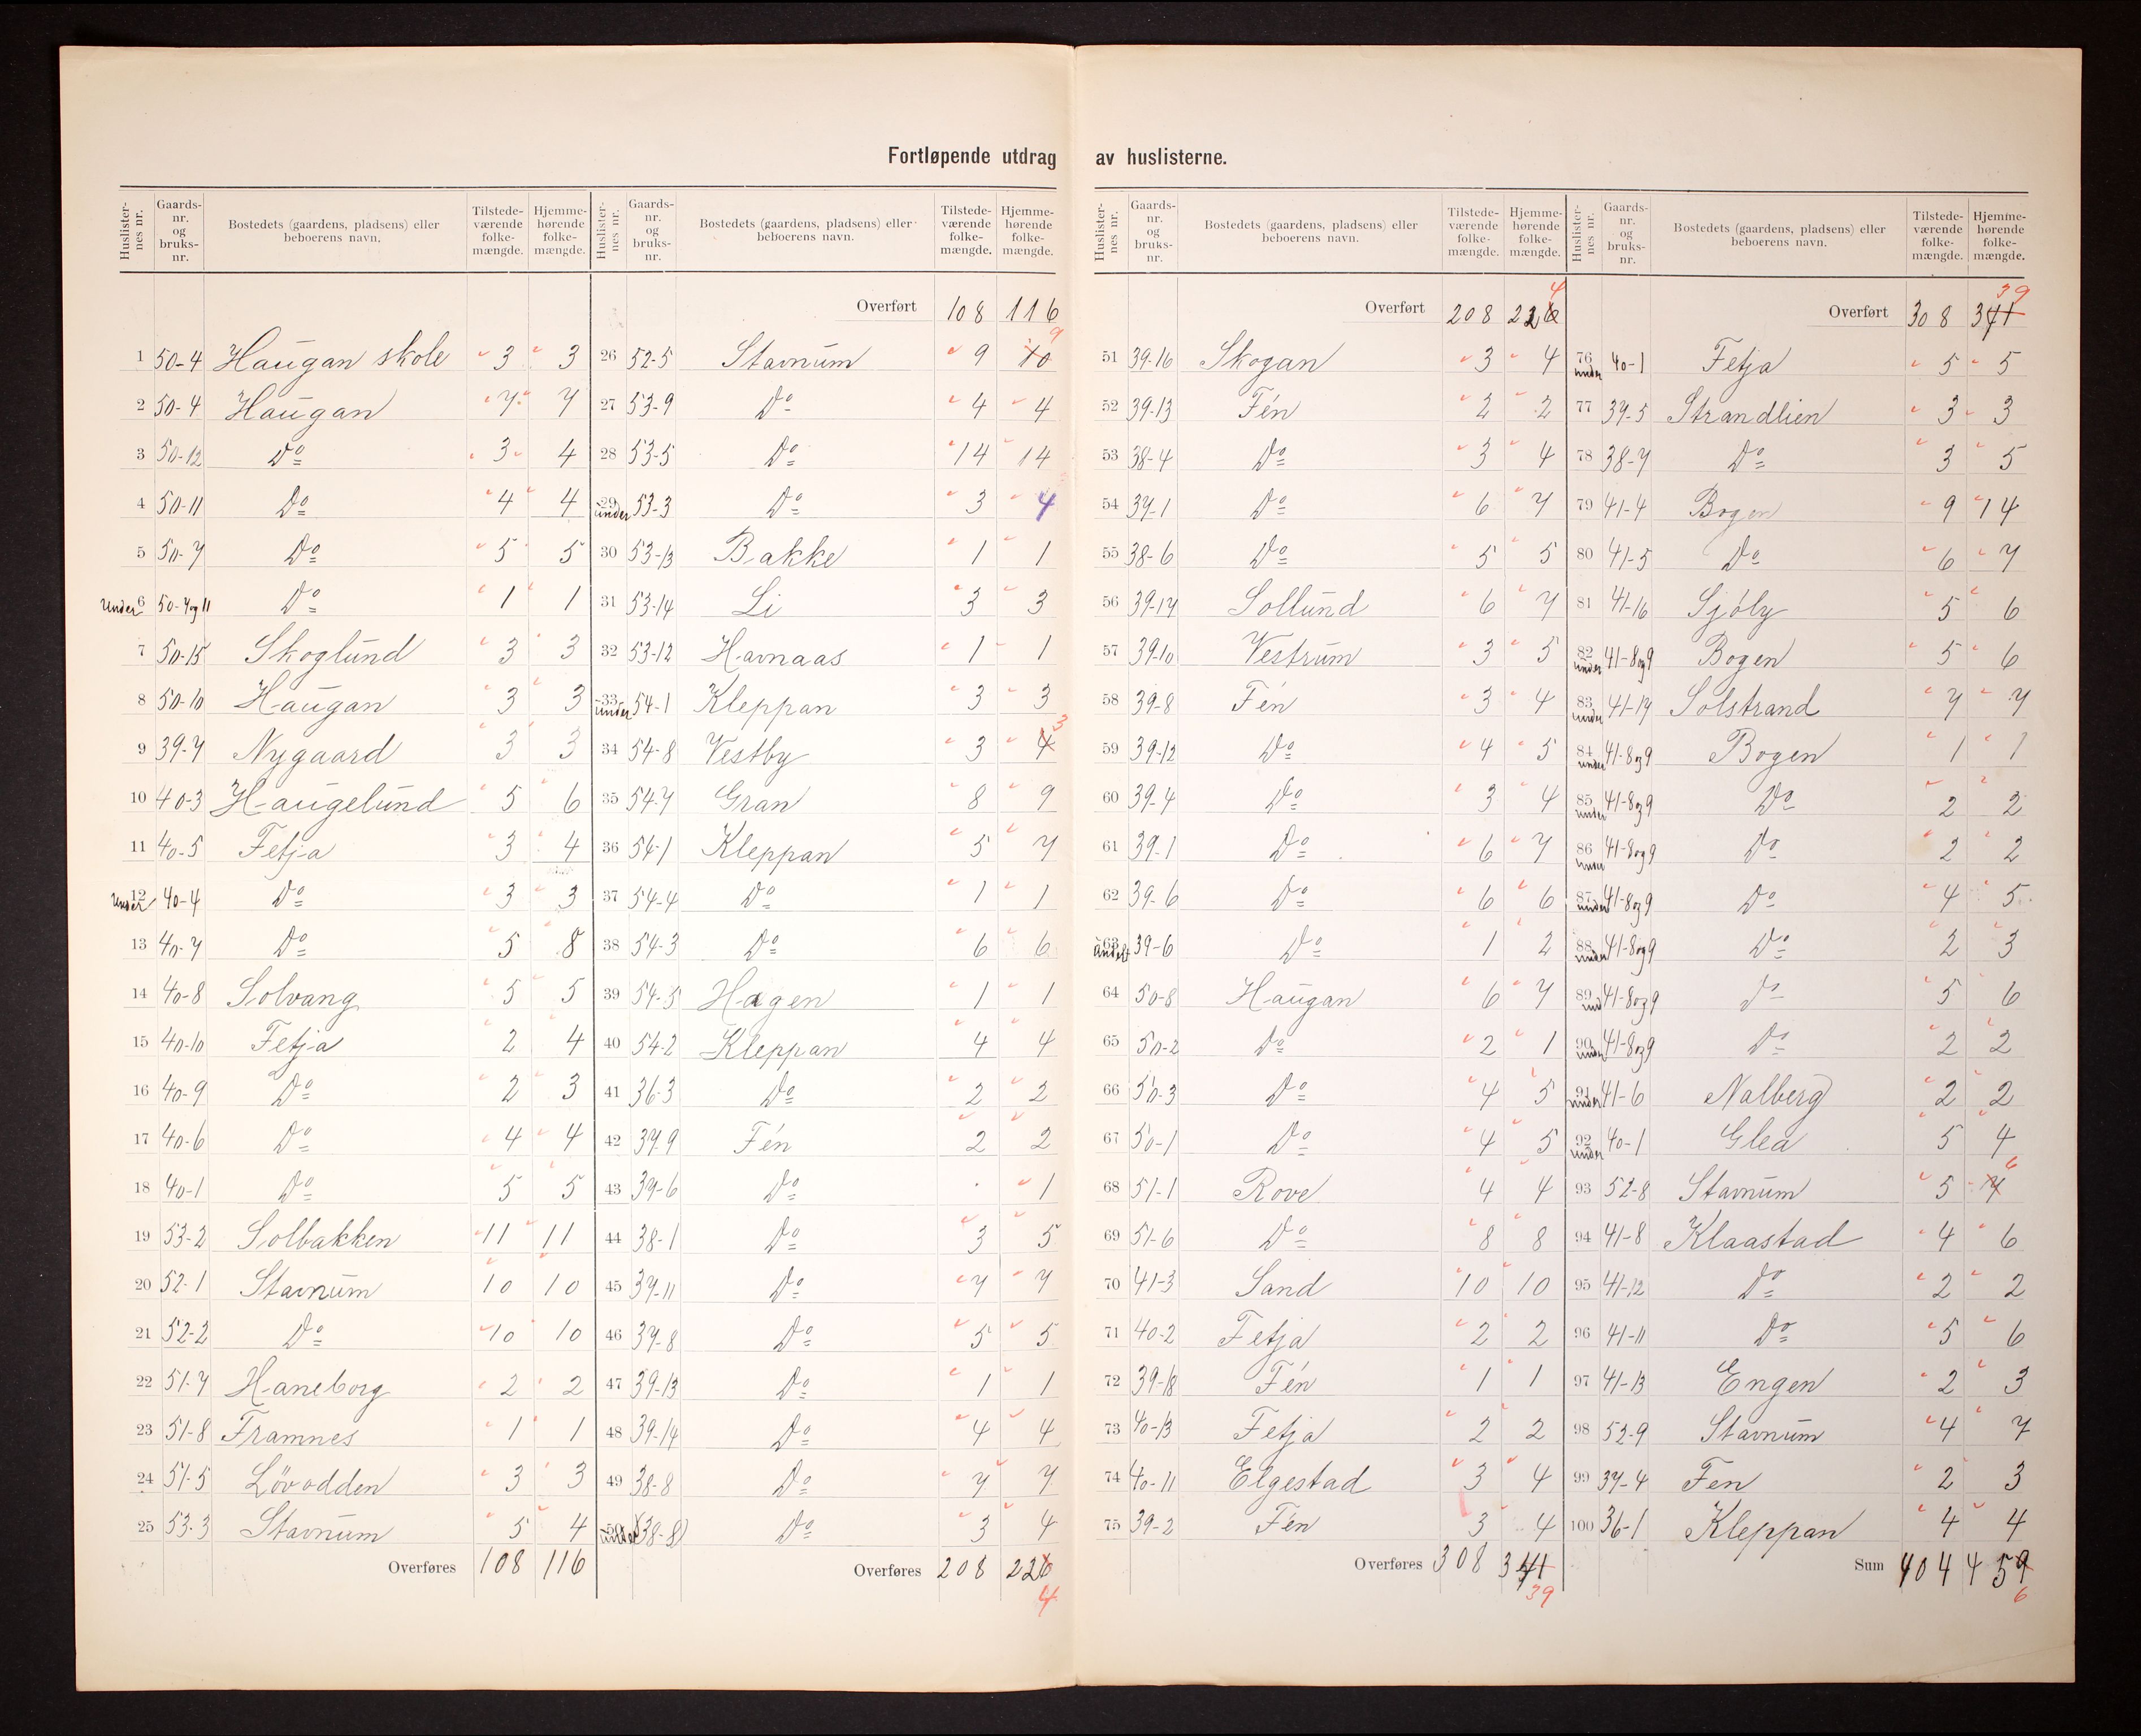 Fortløpende utdrag av huslisterne.
Huslisternes nr. Gaardsnr. og bruksnr. Bostedets (gaardens, pladsens) eller beboerens navn. Tilstedeværende folkemængde. Hjemmehørende folkemængde.
1 50-4 Haugan skole 3 3
2 50-4 Haugan 7 7
3 50-12 Do 3 4
4 50-11 Do 4 4
5 50-7 Do 5 5
Under 6 50-7og11 Do 1 1
7 50-15 Skoglund 3 3
8 50-10 Haugan 3 3
9 39-7 Nygaard 3 3
10 40-3 Haugelund 5 6
11 40-5 Fetja 3 4
Under 12 40-4 Do 3 3
13 40-7 Do 5 8
14 40-8 Solvang 5 5
15 40-10 Fetja 2 4
16 40-9 Do 2 3
17 40-6 Do 4 4
18 40-1 Do 5 5
19 53-2 Solbakken 11 11
20 52-1 Stavnum 10 10
21 52-2 Do 10 10
22 51-7 Haneborg 2 2
23 51-8 Framnes 1 1
24 51-5 Lövodden 3 3
25 53-3 Stavnum 5 4
Overføres 108 116
Huslisternes nr. Gaardsnr. og bruksnr. Bostedets (gaardens, pladsens) eller beboerens navn. Tilstedeværende folkemængde. Hjemmehørende folkemængde.
Overført 108 116
26 52-5 Stavnum 9 10 9
27 53-9 Do 4 4
28 53-5 Do 14 14
29 under 53-3 Do 3 4
30 53-13 Bakke 1 1
31 53-14 Li 3 3
32 53-12 Havnaas 1 1
33 under 54-1 Kleppan 3 3
34 54-8 Vestby 3 4 3
35 54-7 Gran 8 9
36 54-1 Kleppan 5 7
37 54-4 Do 1 1
38 54-3 Do 6 6
39 54-5 Hagen 1 1
40 54-2 Kleppan 4 4
41 36-3 Do 2 2
42 37-9 Fén 2 2
43 39-6 Do . 1
44 38-1 Do 3 5
45 37-11 Do 7 7
46 37-8 Do 5 5
47 39-13 Do 1 1
48 39-14 Do 4 4
49 38-8 Do 7 7
50 under (38-8) Do 3 4
Overføres 208 226 4
Huslisternes nr. Gaardsnr. og bruksnr. Bostedets (gaardens, pladsens) eller beboerens navn. Tilstedeværende folkemængde. Hjemmehørende folkemængde.
Overført 208 226 4
51 39-16 Skogan 3 4
52 39-13 Fén 2 2
53 38-4 Do 3 4
54 37-1 Do 6 7
55 38-6 Do 5 5
56 39-17 Sollund 6 7
57 39-10 Vestrum 3 5
58 39-8 Fén 3 4
59 39-12 Do 4 5
60 39-4 Do 3 4
61 39-1 Do 6 7
62 39-6 Do 6 6
63 39-6 Do 1 2
64 50-8 Haugan 6 7
65 50-2 Do 2 1
66 50-3 Do 4 5
67 50-1 Do 4 5
68 51-1 Rove 4 4
69 51-6 Do 8 8
70 41-3 Sand 10 10
71 40-2 Fetja 2 2
72 39-18 Fén 1 1
73 40-13 Fetja 2 2
74 40-11 Elgestad 3 4
75 39-2 Fén 3 4
Overføres 308 341 39
Huslisternes nr. Gaardsnr. og bruksnr. Bostedets (gaardens, pladsens) eller beboerens navn. Tilstedeværende folkemængde. Hjemmehørende folkemængde.
Overført 308 341 39
76 under 40-1 Fetja 5 5
77 39-5 Strandlien 3 3
78 38-7 Do 3 5
79 41-4 Bogen 9 14
80 41-5 Do 6 7
81 41-16 Sjöly 5 6
82 under 41-8og9 Bogen 5 6
83 under 41-17 Solstrand 7 7
84 under 41-8og9 Bogen 1 1
85 under 41-8og9 Do 2 2
86 under 41-8og9 Do 2 2
87 under 41-8og9 Do 4 5
88 under 41-8og9 Do 2 3
89 und 41-8og9 Do 5 6
90 under 41-8og9 Do 2 2
91 under 41-6 Nalberg 2 2
92 under 40-1 Glea 5 4
93 52-8 Stavnum 5 7 6
94 41-8 Klaastad 4 6
95 41-12 Do 2 2
96 41-11 Do 5 6
97 41-13 Engen 2 3
98 52-9 Stavnum 4 7
99 37-4 Fen 2 3
100 36-1 Kleppan 4 4
Sum 404 459 6